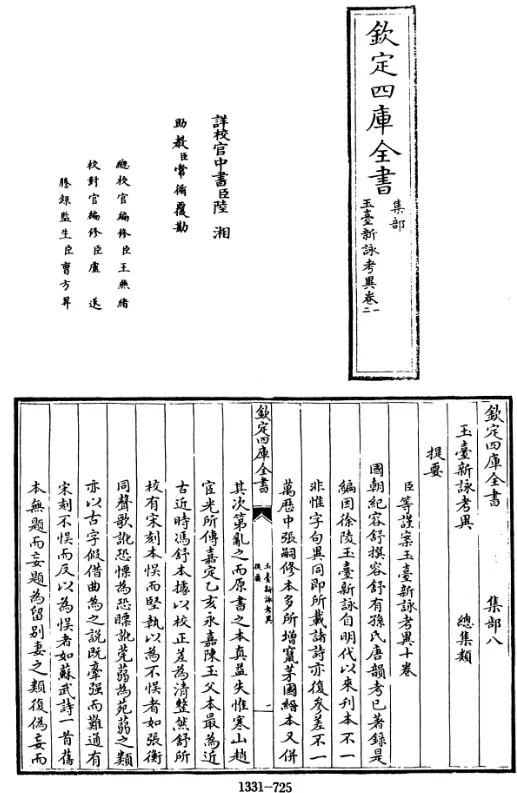 欽定四庫全書
集部
玉臺新詠考異卷一
二
詳校官中書臣陸湘
助教臣常循覆勘
總校官編修臣王燕緒
校對官編修臣盧遂
謄錄監生臣曹方昇
欽定四庫全書 集部八
玉臺新詠考異 總集類
提要
臣等謹案玉臺新詠考異十卷
國朝紀容舒撰容舒有孫氏唐韻考已著錄是
編因徐陵玉臺新詠自明代以來刊本不一
非惟字句異同即所載諸詩亦復參差不一
萬歷中張嗣修本多所增竄茅國縉本又併
欽定四庫全書
玉臺新詠考異
提要
一
其次第亂之而原書之本真益失惟寒山趙
宧光所傳嘉定乙亥永嘉陳玉父本最為近
古近時馮舒本據以校正差為清整然舒所
校有宋刻本悞而堅執以為不悞者如張衡
同聲歌訛恐慄為恐瞟訛莞蒻為苑蒻之類
亦以古字假借曲為之說既牽强而難通有
宋刻不悞而反以為悞者如蘇武詩一首舊
本無題而妄題為留别妻之類復偽妄而
1331-725